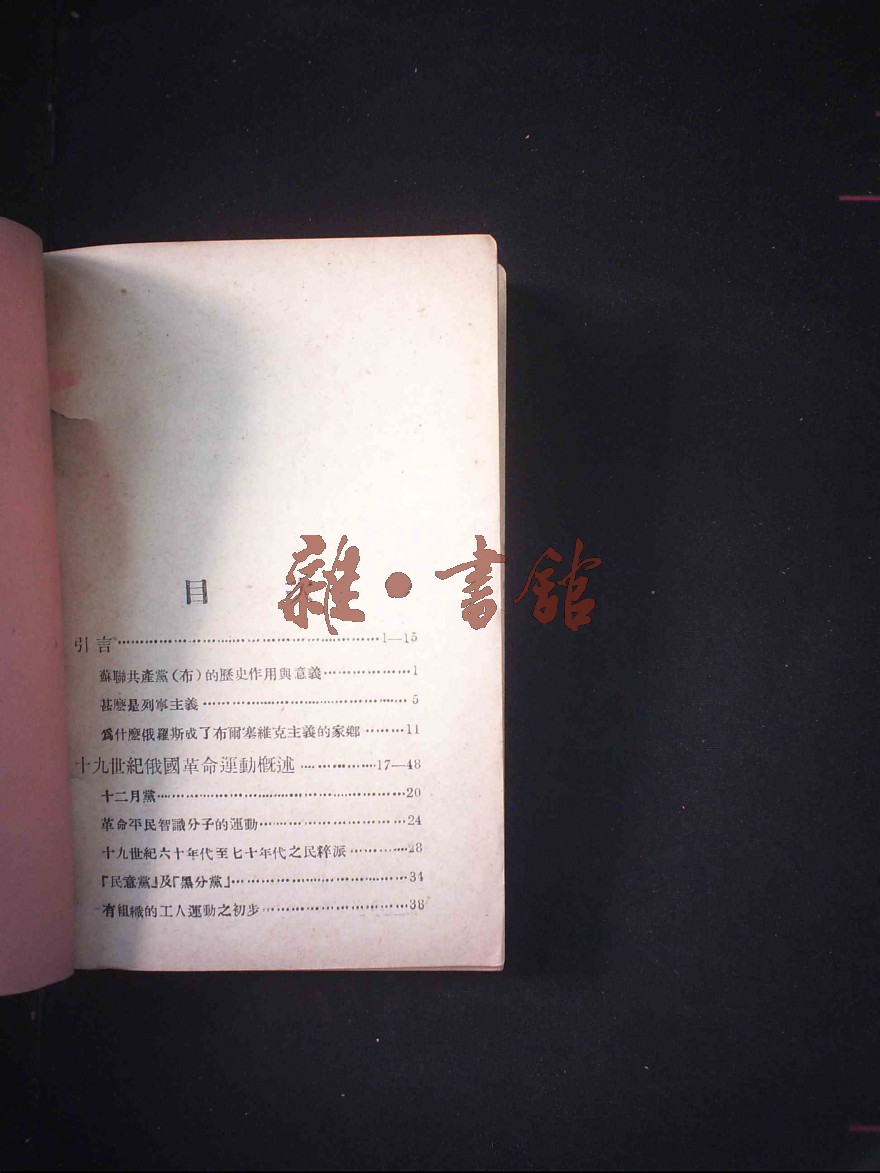 目
雜·書館
引言……1—15
蘇聯共產黨(布)的歷史作用與意義……1
甚麽是列寧主義……5
爲什麽俄羅斯成了布爾塞維克主義的家鄉……11
十九世紀俄國革命運動槪述……17—48
十二月黨……20
革命平民智識分子的運動……24
十九世紀六十年代至七十年代之民粹派……28
『民意黨』及『黑分黨』……34
有組織的工人運動之初步……38